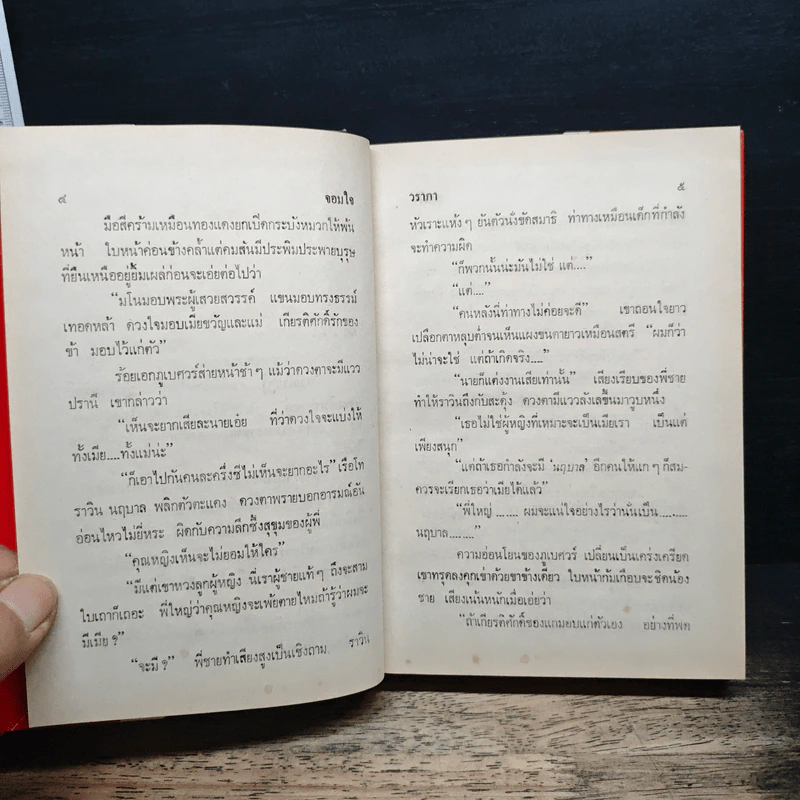 ๔ จอมใจ
มือสีคร้ามเหมือนทองแดงยกเปิดกระบังหมวกให้พ้น
หน้า ใบหน้าค่อนข้างคล้ำแต่คมสันมีประพิมประพายบุรุษ
ที่ยืนเหนืออยู่ยิ้มเผล่ก่อนจะเอ่ยต่อไปว่า
“มโนมอบพระผู้เสวยสวรรค์ แขนมอบทรงธรรม์
เทอดหล้า ดวงใจมอบเมียขวัญและแม่ เกียรติศักดิ์รักของ
ข้า มอบไว้แก่ตัว”
ร้อยเอกภูเบศวร์ส่ายหน้าช้าๆ แม้ว่าดวงตาจะมีแวว
ปรานี เขากล่าวว่า
“เห็นจะยากเสียละนายเอ๋ย ที่ว่าดวงใจจะแบ่งให้
ทั้งเมีย....ทั้งแม่น่ะ”
“ก็เอาไปกันคนละครึ่งซีไม่เห็นจะยากอะไร” เรือโท
ราวิน นฤบาล พลิกตัวตะแคง ดวงตาพรายบอกอารมณ์อัน
อ่อนไหวไม่ยี่หระ ผิดกับความลึกซึ้งสุขุมของผู้พี่
“คุณหญิงเห็นจะไม่ยอมให้ใคร”
“มีแต่เขาหวงลูกผู้หญิง นี่เราผู้ชายแท้ๆ ถึงจะสาม
ใบเถาก็เถอะ พี่ใหญ่ว่าคุณหญิงจะเพ้ยตายไหมถ้ารู้ว่าผมจะ
มีเมีย ?”
“จะมี ?” พี่ชายทำเสียงสูงเป็นเชิงถาม ราวิน
วรากา ๕
หัวเราะแห้งๆ ยันตัวนั่งขัดสมาธิ ท่าทางเหมือนเด็กที่กำลัง
จะทำความผิด
“ก็พวกนั้นน่ะมันไม่ใช่ แต่....”
“แต่....”
“คนหลังนี่ท่าทางไม่ค่อยจะดี” เขาถอนใจยาว
เปลือกตาหลุบต่ำจนเห็นแผงขนตายาวเหมือนสตรี “ผมก็ว่า
ไม่น่าจะใช่ แต่ถ้าเกิดจริง....”
“นายก็แต่งงานเสียเท่านั้น” เสียงเรียบของพี่ชาย
ทำให้ราวินถึงกับสะดุ้ง ดวงตามีแววลังเลขึ้นมาวูบหนึ่ง
“เธอไม่ใช่ผู้หญิงที่เหมาะจะเป็นเมียเรา เป็นแต่
เพียงสนุก”
“แต่ถ้าเธอกำลังจะมี ‘นฤบาล’ อีกคนให้แกๆ ก็สม-
ควรจะเรียกเธอว่าเมียได้แล้ว”
“พี่ใหญ่ ........ ผมจะแน่ใจอย่างไรว่านั่นเป็น.........
นฤบาล........”
ความอ่อนโยนของภูเบศวร์ เปลี่ยนเป็นเคร่งเครียด
เขาทรุดลงคุกเข่าด้วยขาข้างเดียว ใบหน้าก้มเกือบจะชิดน้อง
ชาย เสียงเน้นหนักเมื่อเอ่ยว่า
“ถ้าเกียรติศักดิ์ของแกมอบแก่ตัวเอง อย่างที่พูด